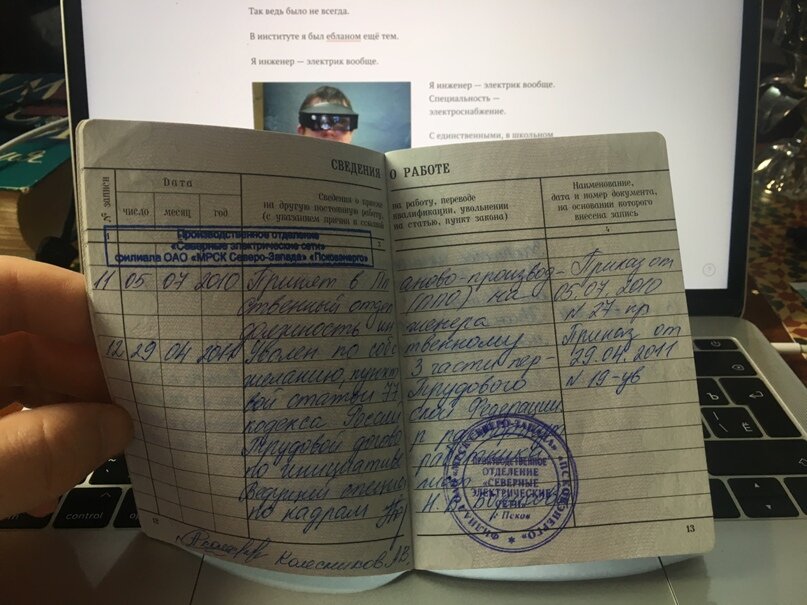 Так ведь было не всегда.
В институте я был ебланом ещё тем.
Я инженер — электрик вообще.
Я инженер — электрик вообще.
Специальность —
электроснабжение.
С единственными, в школьном
СВЕДЕНИЯ О РАБОТЕ
№ записи
Дата
число месяц год
Сведения о приеме на работу, переводе
на другую постоянную работу, квалификации, увольнении
(с указанием причин и ссылкой на статью, пункт закона)
Наименование,
дата и номер документа,
на основании которого
внесена запись
1 3 4
Производственное отделение
«Северные электрические сети»
филиала ОАО «МРСК Северо-Запада» «Псковэнерго»
11 05 07 2010 Принят в Пл аново-производ- Приказ от
ственный отдел (ППО) на 05.07.2010
должность ин женера N 27-пр
12 29 04 2011 Уволен по собс твенному Приказ от
желанию, пункт 3 части пер- 29.04.2011
вой статьи 77 Трудового N 19-ув
кодекса Россий ской Федерации
Трудовой догово р
по инициативе работника
Ведущий специа лист
по кадрам Н.В.
ФИЛИАЛ ОАО «МРСК СЕВЕРО-ЗАПАДА» «ПСКОВЭНЕРГО»
ПРОИЗВОДСТВЕННОЕ
ОТДЕЛЕНИЕ
«СЕВЕРНЫЕ
ЭЛЕКТРИЧЕСКИЕ
СЕТИ»
г. Псков
12 13
Колесников А.В.
control
option